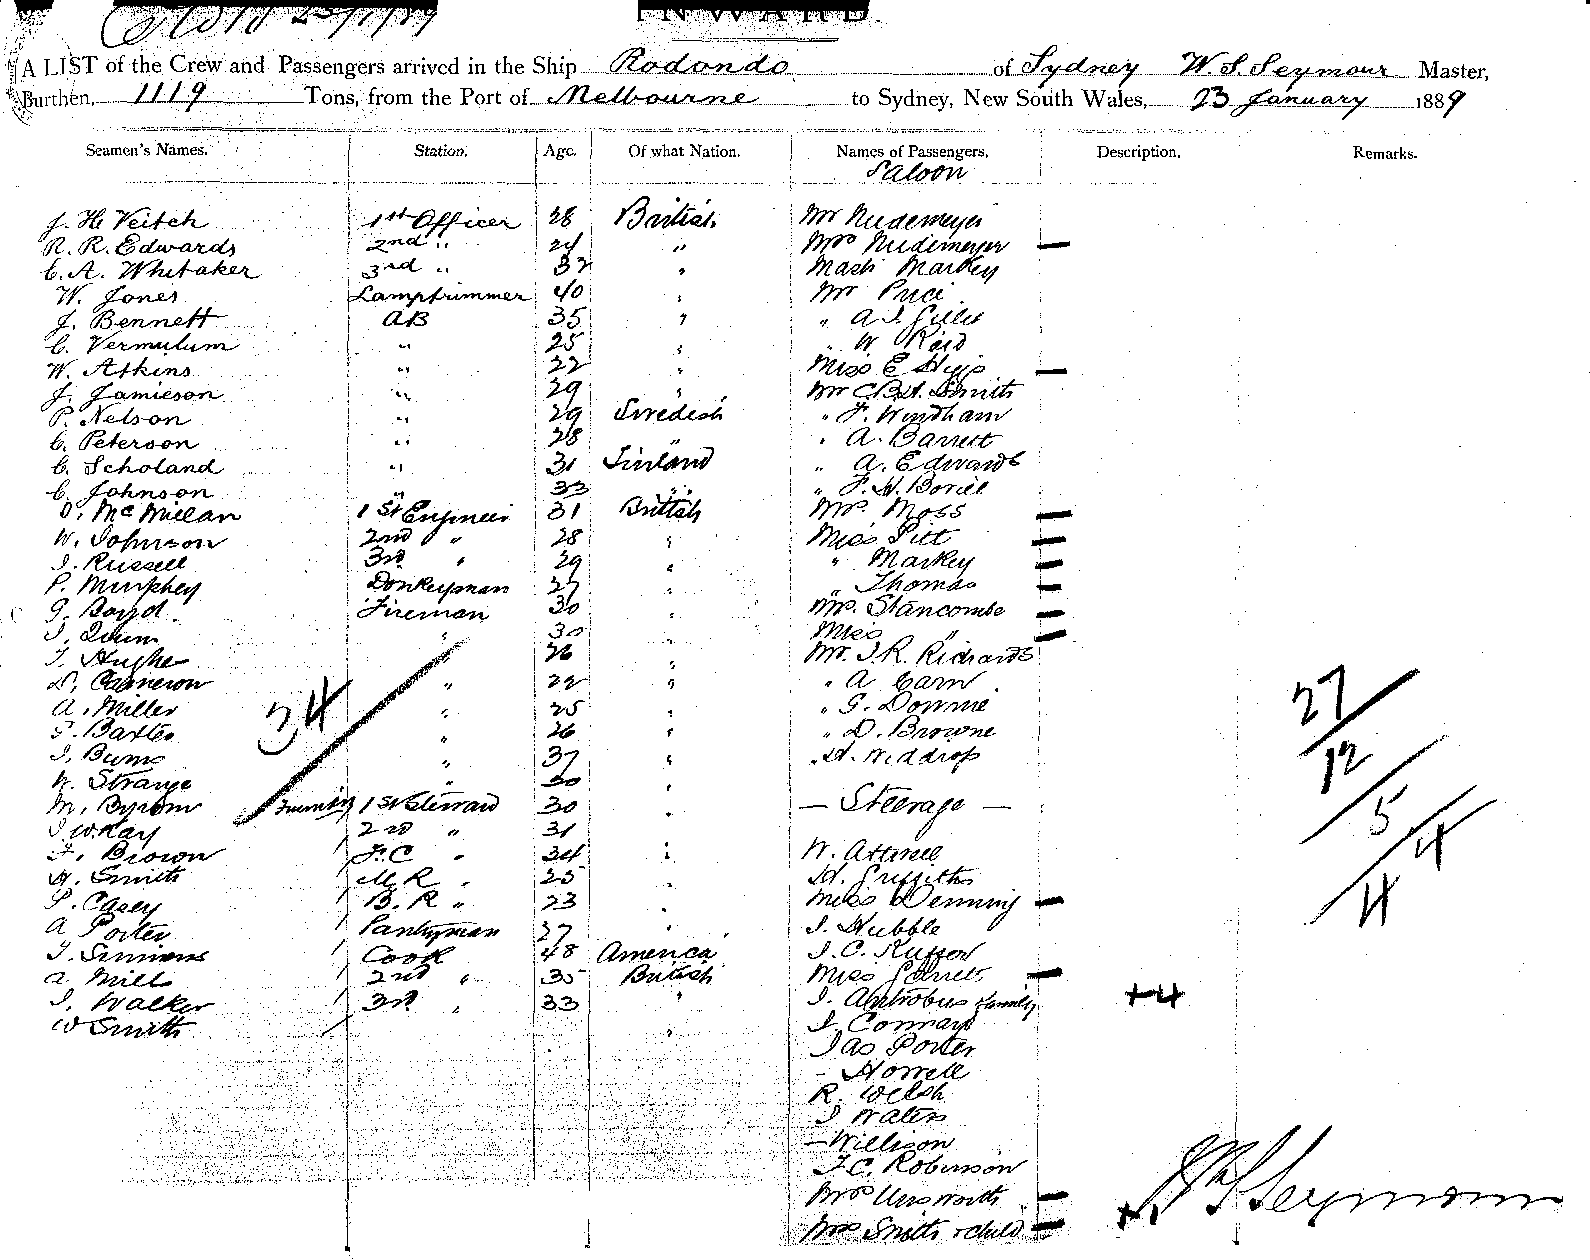 INWARD.
A LIST of the Crew and Passengers arrived in the Ship Rodondo of Sydney W. S. Seymour Master,
Burthen, 1119 Tons, from the Port of Melbourne to Sydney, New South Wales, 23 January 1889
Seamen's Names. Station. Age. Of what Nation. Names of Passengers. Description. Remarks.
Saloon
J. H. Veitch 1st Officer 28 British Mr Nudemeyer
R. R. Edwards 2nd " 24 " Mrs Nudemeyer —
C. A. Whitaker 3rd " 32 " Mast Markey
W. Jones Lamptrimmer 40 " Mr Price
J. Bennett AB 35 " " A. J.
C. Vermulum " 25 " " W Reid
W. Atkins " 22 " Miss E —
J. Jamieson " 29 " Mr C. B. H. Smith
P. Nelson " 29 Swedish " F. Windham
C. Peterson " 28 " " A. Barrett
C. Scholand " 31 Finland " A. Edwards
C. Johnson " 33 " " F. H. Bovill
D. McMillan 1st Engineer 31 British Mrs. Moss —
W. Johnson 2nd " 28 " Miss Pitt —
J. Russell 3rd " 29 " " Markey —
P. Murphey Donkeyman 27 " " Thomas —
G. Boyd Fireman 30 " Mrs. Stancombe —
J. Quinn " 30 " Miss " —
T. Hughe 26 " Mr. J. R. Richards
D. Cameron " 22 " " A Carn
A. Miller " 25 " " G. Downie
G. Baxter " 26 " " D. Browne
J. Burns " 37 " " H. Widdrop
W. Strange " 30
34
27 / 12 / 5 / 4 / 4
M. Byrom 1st Steward 30 " — Steerage —
J. W. Kay 2nd " 31 "
F. Brown F.C " 34 " W. Attwell
H. Smith M. R " 25 " H. Griffiths
P. Casey B. R " 23 " Miss Denning —
A Porter Pantryman 27 " J. Hubble
T. Simmons Cook 48 America J. C.
A. Mills 2nd " 35 British Miss —
J. Walker 3rd " 33 " J. Antrobus family +4
W Smith " J. Conway
Jas Porter
- Howell
R. Welsh
J Waters
— Willison
J. C. Robinson
Mrs Unsworth —
Mrs Smith + child —
W S Seymour